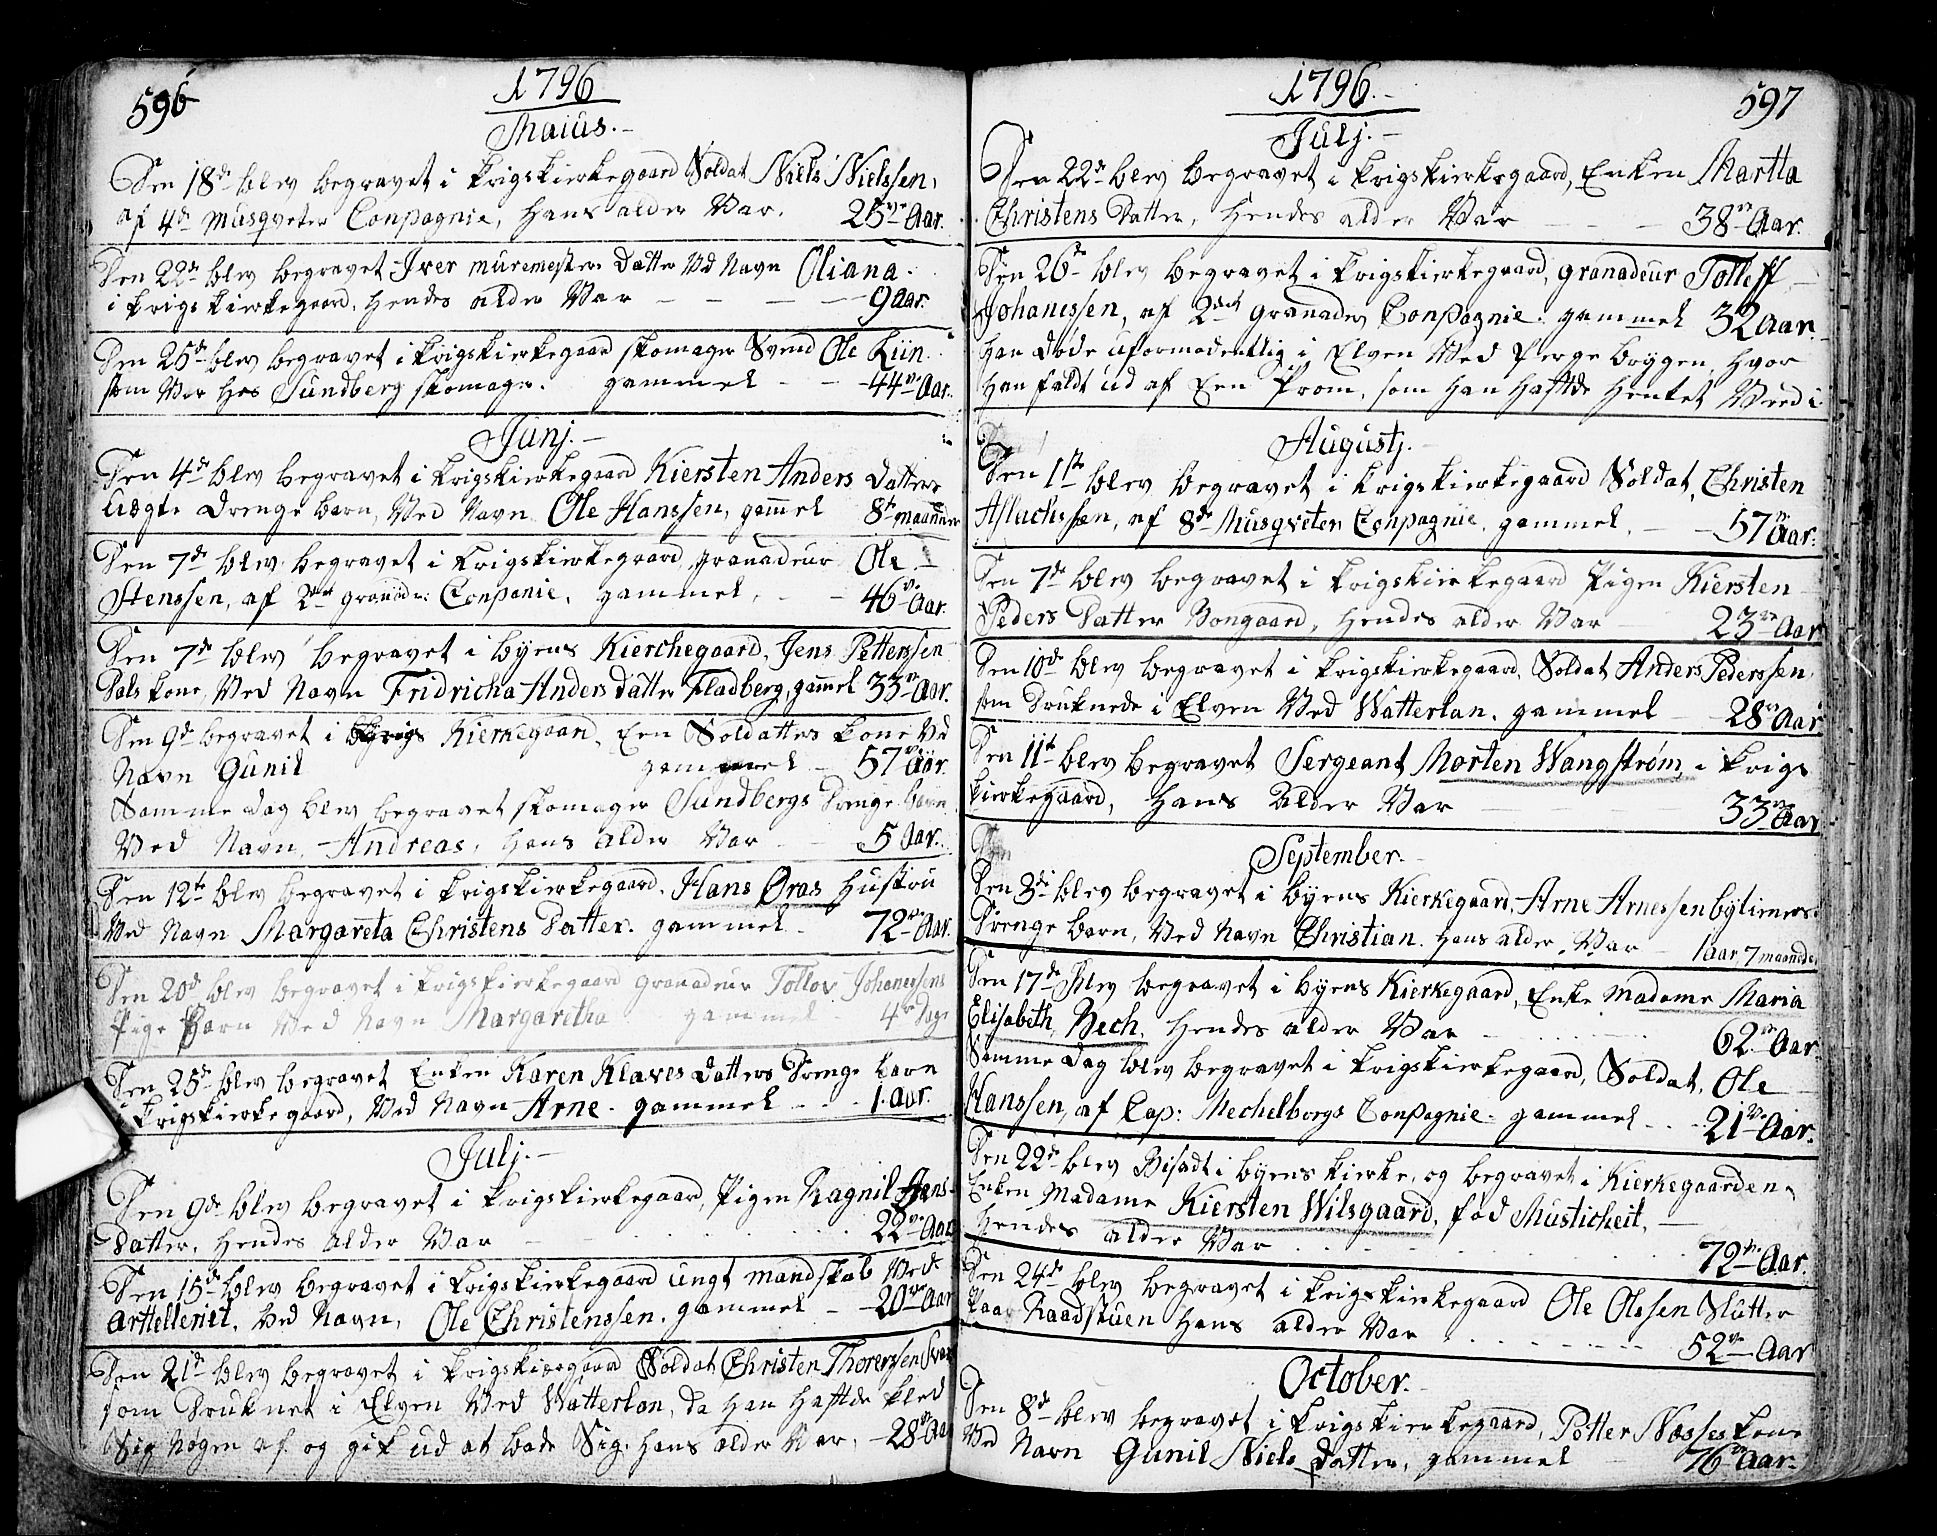 596
1796
Maius.
Den 18de blev begravet i krigskierkegaard Soldat Niels Nielssen,
af 4de musqveter Conpagnie, hans alder Var. 25ve Aar.
Den 22de blev begravet Iver muremesters datter ved Navn Oliana.
i krigskierkegaard, hendes alder Var - - - 9 aar.
Den 25de blev begravet i krigskierkegaar skomager Svend Ole Liin.
som Var hos Sundberg skomager. gammel - - 44ve Aar.
Junj.
Den 4de blev begravet i krigskierkegaard Kiersten Anders datters
Uægte drenge barn, Ved Navn Ole Hanssen, gamel 8te maanneder
Den 7de blev begravet i krigskierkegaard granadeur Ole
Stenssen, af 2det granader Conpanie. gammel. - - 46ve Aar.
Den 7de blev begravet i byens Kierchegaard, Jens Petterssen
Dals kone, Ved Navn Fridricha Anders datter Fladberg, gamel 33ve Aar.
Den 9de begravet i Kierkegaard, Een Soldatters kone ved
Navn Gunil gammel - 57ve Aar.
Samme dag blev begravet skomager Sundbergs Drenge barn
Ved Navn Andreas, hans alder Var - - 5 Aar.
Den 12te blev begravet i krigskierkegaard, Hans Øras hustru
Ved Navn Margareta Christens Datter. gammel - 72ve Aar.
Den 20de blev begravet i krigskierkegaard granadeur Tollov Johanessens
Pige Barn Ved Navn Margaretha gammel - 4re Dage
Den 25de blev begravet Enken Karen Klaves datters Drenge barn
i krigskierkegaard, Ved Navn Arne. gammel - - - 1. aar.
Julj.
Den 9de blev begravet i krigskierkegaard, Pigen Ragnil Hans
Datter, hendes alder Var - - 22ve Aar
Den 15de blev begravet i krigskierkegaard ungt mandskab Ved
arttelleriet, Ved Navn, Ole Christenssen, gammel - 20ve Aar
Den 21de blev begravet i krigskieregaard Soldat Christen Thorerssen
som Druknet i Elven Ved Watterlan, da han haffde kled
Sig Nøgen af og gik ud at bade Sig. hans alder Var, - 28ve Aar
597
1796.
Julj.
Den 22de blev begravet i krigskierkegaard, Enken Martta
Christens Datter, hendes alder Var - - - 38ve Aar.
Den 26de blev begravet i krigskierkegaard, granadeur Tolleff
Johanessen, af 2det granader Conpagnie. gammel 32 aar.
han døde uformodentlig i Elven Ved ferge bryggen, hvor
han faldt ud af Een Prom, som han haffde hentet Veed i
Augustj.
Den 1ste blev begravet i krigskierkegaard Soldat, Christen
Aslachssen, af 8de Musqveter Conpagnie. gammel. - - 57ve Aar.
Den 7de blev begravet i krigskierkegaard Pigen Kiersten
Peders Datter Bongaard, hendes alder Var 23ve Aar
Den 10de blev begravet i krigskierkegaard, Soldat Anders Pederssen,
som Druknede i Elven Ved Watterlan. gammel - 28ve Aar
Den 11te blev begravet Sergeant Morten Wangstrøm, i krigs
kierkegaard, hans Alder Var 33ve Aar
September.
Den 3de blev begravet i byens Kierkegaard, Arne Arnessen
Drenge barn, Ved Navn Christian. hans alder Var 1 aar 7 maander
Den 17de Blev begravet i byens Kierkegaard, Enke Madame Maria
Elisabeth Bech, hendes alder Var 62ve Aar.
Samme dag blev begravet i krigskierkegaard, Soldat, Ole
Hanssen, af Cap: Mechelborgs Conpagnie. gammel - - - 21ve Aar.
Den 22de blev Bisadt i byens kierke, og begravet i Kierkegaarden,
Enken Madame Kiersten Wilsgaard, fød Musticheit,
hendes alder Var 72ve Aar.
Den 24de blev begravet i krigskierkegaard Ole Olssen Slutter
Paa Raadstuen hans alder Var 52ve Aar
October.
Den 8de blev begravet i krigskierkegaard, Potter Næsses kone
Ved Navn Gunil Niels Datter, gammel - 76ve Aar.